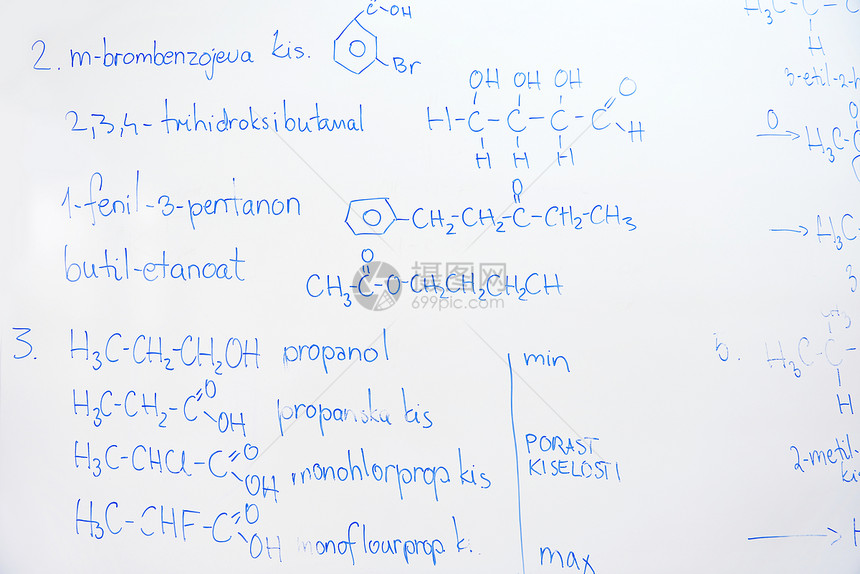 C-OH
2. m-brombenzojeva kis. Br
2,3,4-trihidroksibutanal
OH OH OH O
H-C-C-C-C-H
H H H
1-fenil-3-pentanon
O
-CH2-CH2-C-CH2-CH3
butil-etanoat
O
CH3-C-O-CH2CH2CH2CH
摄图网
699pic.com
3. H3C-CH2-CH2OH propanol
H3C-CH2-C=O OH propanska kis
H3C-CHCl-C=O OH monohlorprop kis
H3C-CHF-C=O OH monoflourprop k.
min
PORAST
KISELOSTI
max
H3C-C-
H
3-etil-2-h
O
O → H3C-C
→ H3C-
3
CH3
b. H3C-C-
H
2-metil-
ki
→ H